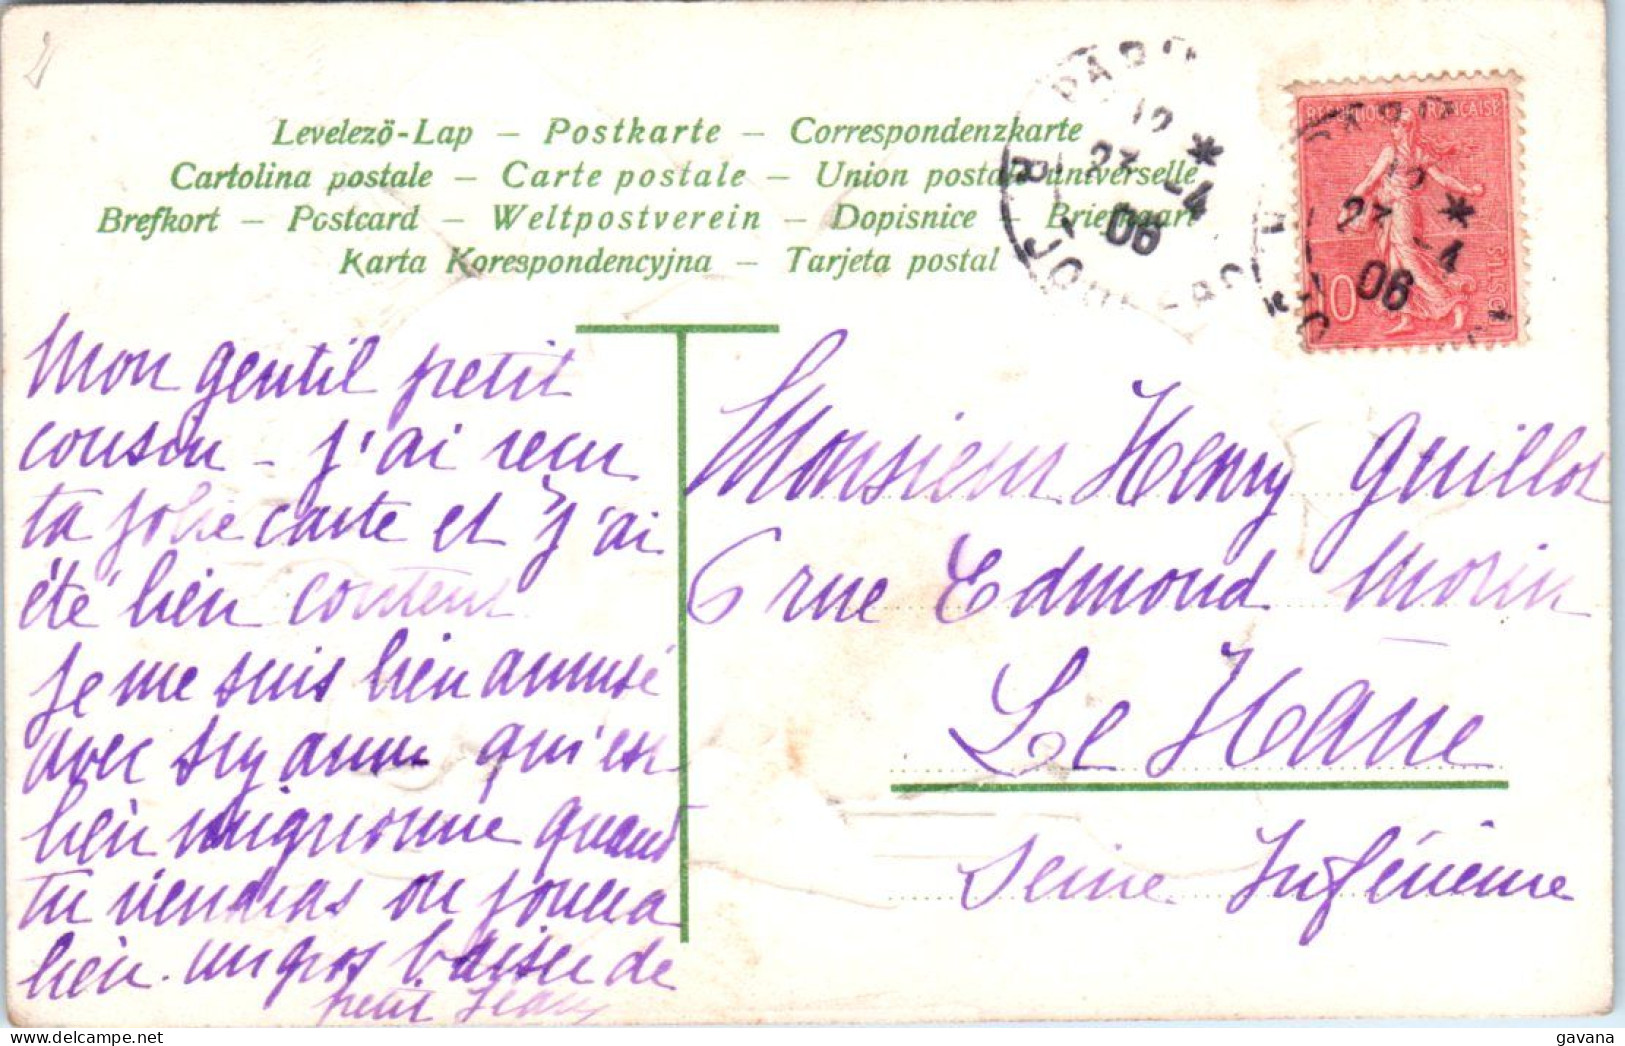 2
Levelezö-Lap – Postkarte – Correspondenzkarte
Cartolina postale – Carte postale – Union postale universelle
Brefkort – Postcard – Weltpostverein – Dopisnice – Briefkaart
Karta Korespondencyjna – Tarjeta postal
PARIS
12 *
23 -4
06
R. JOUFFROY
REPUBLIQUE FRANÇAISE
10
POSTES
PARIS
12 *
23 -4
06
Mon gentil petit
cousin – j'ai recu
ta jolie carte et j'ai
été bien content
je me suis bien amusé
avec qui est
bien mignonne quand
tu viendras on jouera
bien. un gros baiser de
petit Jean
Monsieur Henry Guillot
6 rue Edmond Morin
Le Havre
Seine Inférieure
gavana